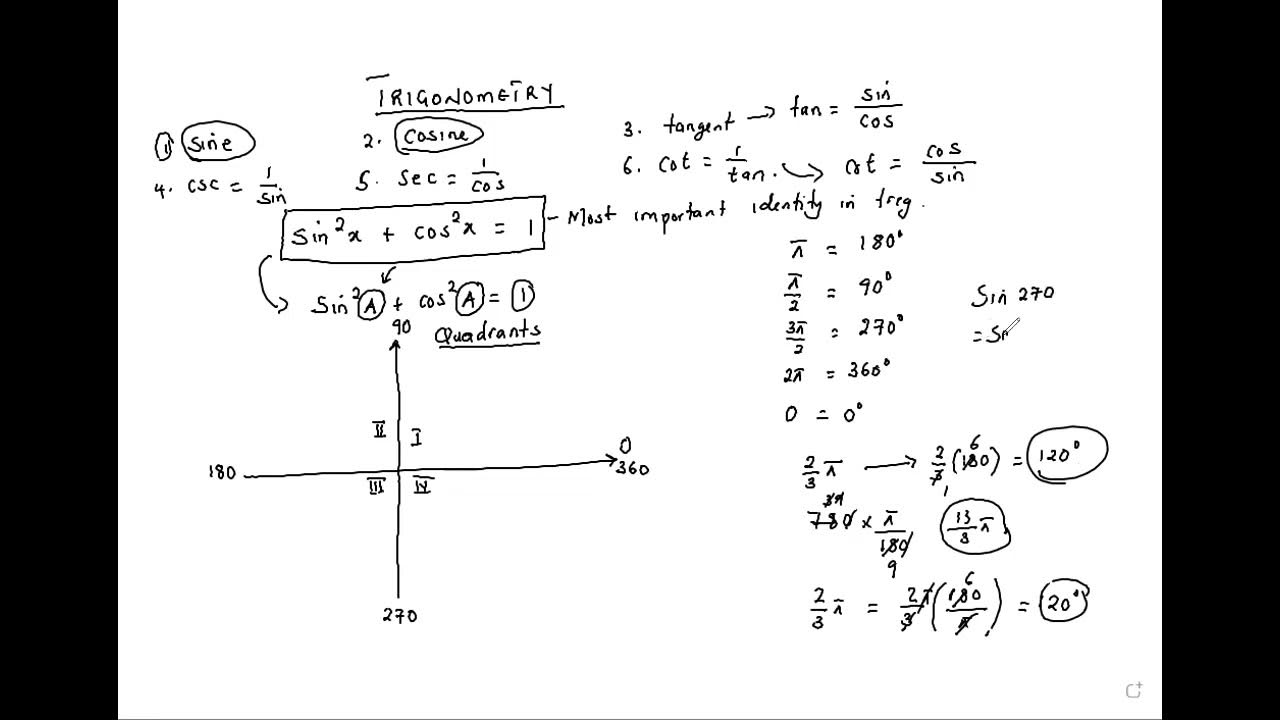 TRIGONOMETRY
① sine 2. cosine 3. tangent → tan = sin/cos
4. csc = 1/sin 5. sec = 1/cos 6. cot = 1/tan. → cot = cos/sin
sin²x + cos²x = 1 - Most important identity in treg.
sin²A + cos²A = 1
Quadrants
90
II I
180 0
360
III IV
270
π = 180°
π/2 = 90°
3π/2 = 270°
2π = 360°
0 = 0°
sin 270
= Si
2/3 π → 2/3 (180) 6 1 = 120°
780 × π/180 39 9 13/3 π
2/3 π = 2π/3 (180/π) 6 = 20°